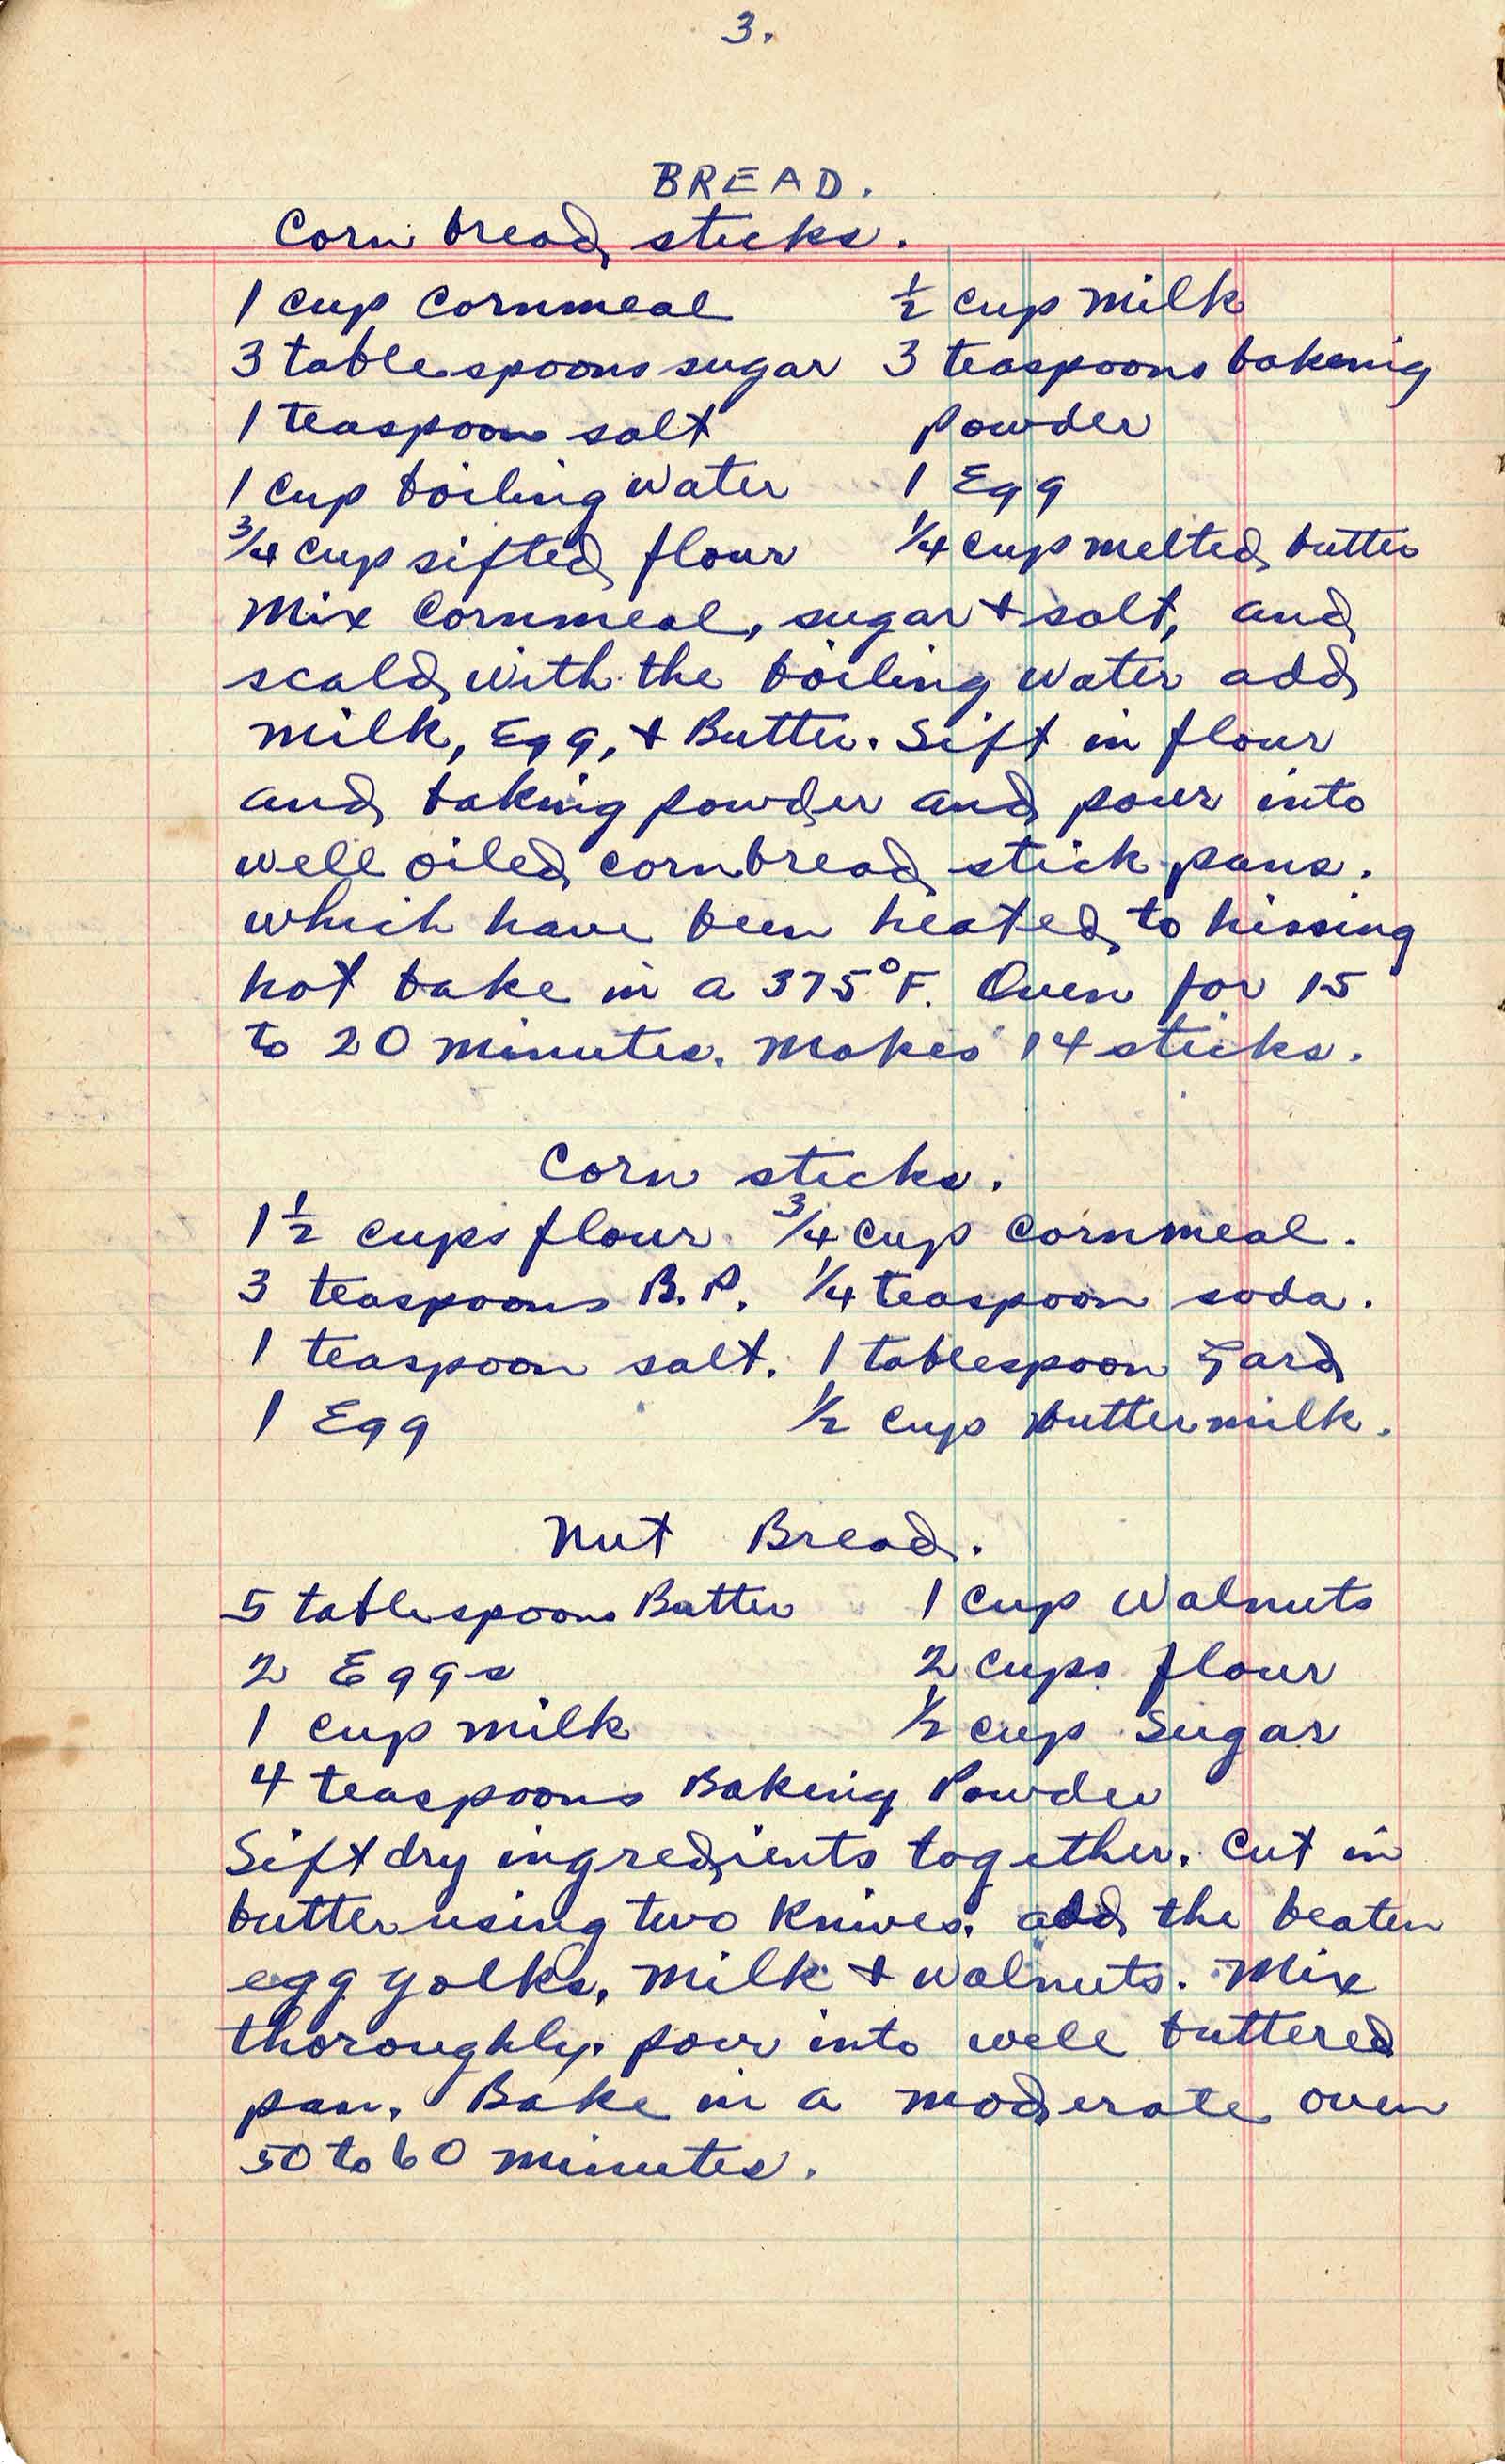 3.
BREAD.
Corn bread sticks.
1 cup cornmeal ½ cup milk
3 tablespoons sugar 3 teaspoons baking
1 teaspoon salt powder
1 cup boiling water 1 Egg
¾ cup sifted flour ¼ cup melted butter
Mix cornmeal, sugar + salt, and
scald with the boiling water add
milk, Egg, + Butter. Sift in flour
and baking powder and pour into
well oiled cornbread stick pans.
which have been heated to hissing
hot bake in a 375°F. Oven for 15
to 20 minutes. Makes 14 sticks.
Corn sticks.
1½ cups flour. ¾ cup cornmeal.
3 teaspoons B.P. ¼ teaspoon soda.
1 teaspoon salt. 1 tablespoon Lard
1 Egg ½ cup buttermilk.
Nut Bread.
5 tablespoons Butter 1 cup Walnuts
2 Eggs 2 cups flour
1 cup milk ½ cup Sugar
4 teaspoons Baking Powder
Sift dry ingredients together. Cut in
butter using two knives. add the beaten
egg yolks, milk + walnuts. Mix
thoroughly. pour into well buttered
pan. Bake in a moderate oven
50 to 60 minutes.